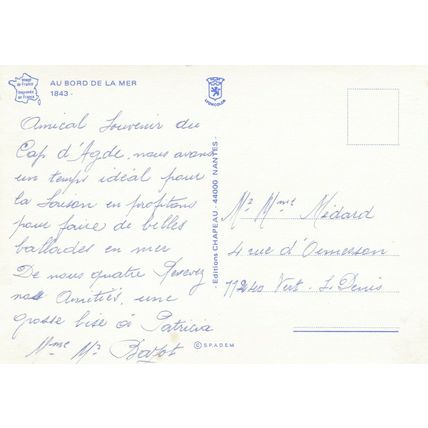 Image de France
Imprimée en France
AU BORD DE LA MER
1843 -
LYONCOLOR
Amical Souvenir du
Cap d'Agde, nous avons
un temps idéal pour
la saison en profitons
pour faire de belles
ballades en mer
De nous quatre Recevez
nos Amitiés, une
grosse bise à Patricia
Mme Mr
- Editions CHAPEAU - 44000 NANTES -
Mr Mme Médard
4 rue d'Ormesson
Vert - St Denis
© S.P.A.D.E.M